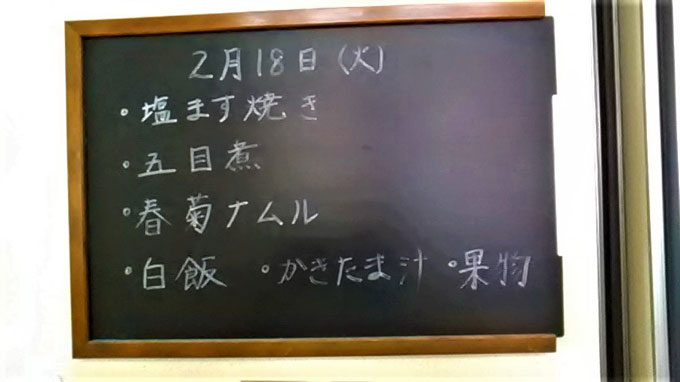 2月18日(火)
・塩ます焼き
・五目煮
・春菊ナムル
・白飯 ・かきたま汁 ・果物